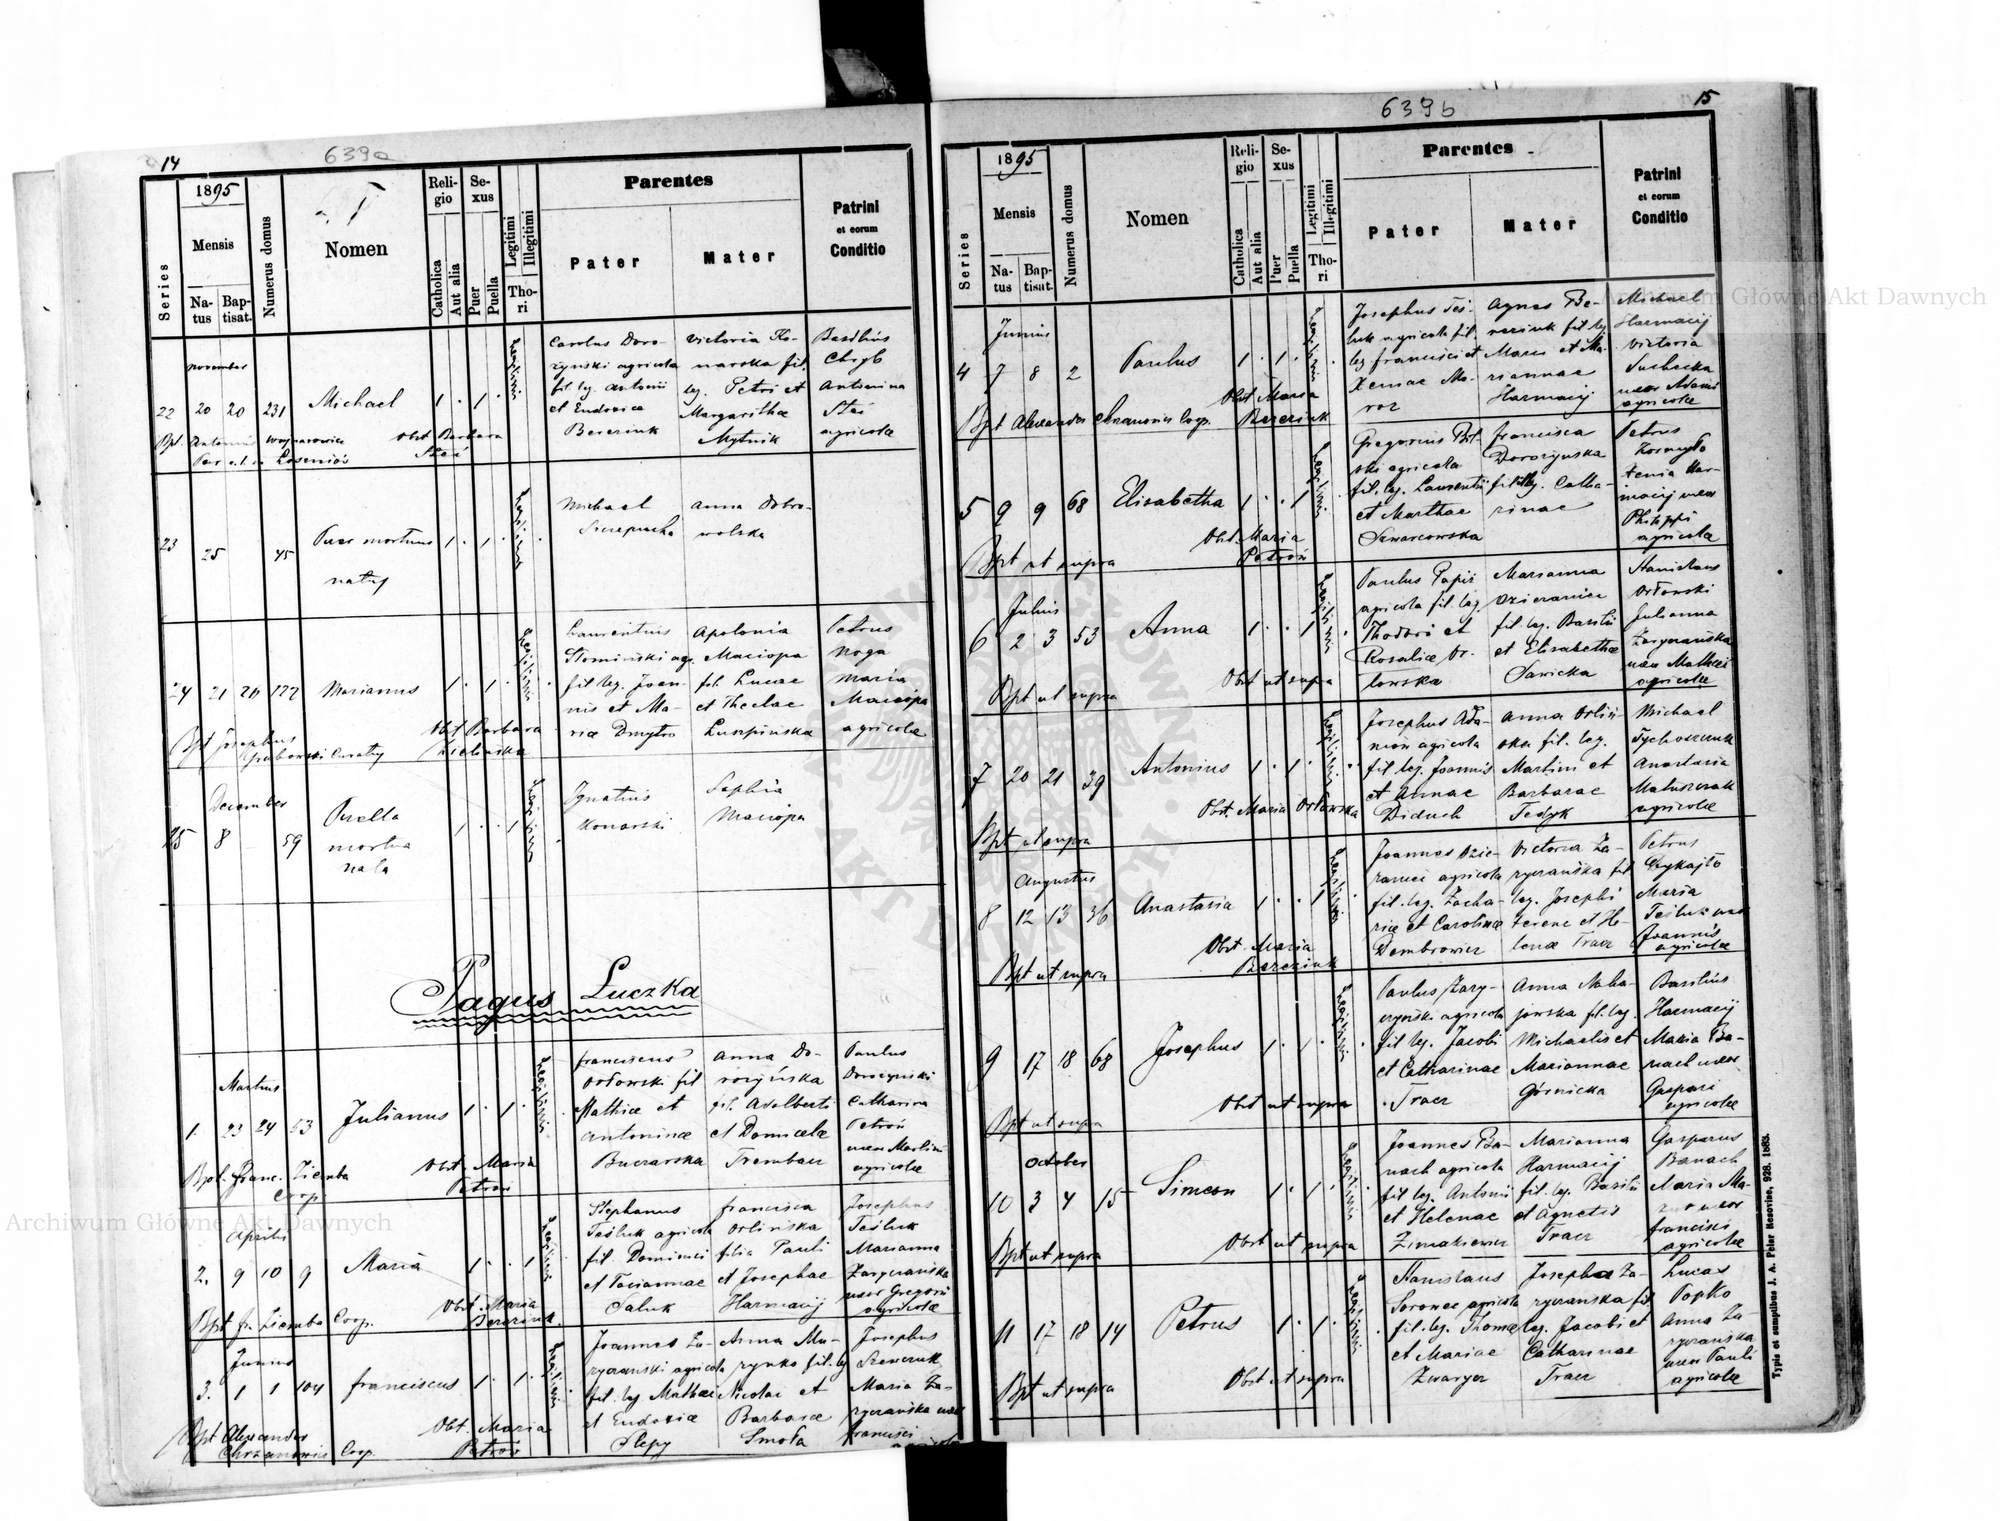 14
639a
1895
Series
Mensis
Natus
Baptisat.
Numerus domus
Nomen
Religio
Catholica
Aut alia
Sexus
Puer
Puella
Legitimi
Illegitimi
Thori
Parentes
Pater
Mater
Patrini
et eorum
Conditio
November
22 20 20 231 Michael 1 . 1 .
Carolus Doro-
żyński agricola
fil. leg. Antonii
et Eudoxiae
Bereziuk
Victoria Ko-
narska fil.
leg. Petri et
Margarithae
Mytnik
Basilius
Chryb
Antonina
Steć
agricolae
Bpt. Antonius Wojnarowicz
Obst Barbara
Steć
23 25 45 Puer mortuus
natus
1 . 1 .
Michael
Szczepucha
Anna Dobro-
wolska
24 21 26 177 Marianus 1 . 1 .
Laurentius
Słomiński ag.
fil leg. Joan-
nis et Ma-
riae Dmytro
Apolonia
Maciopa
fil. Lucae
et Theclae
Lumpinska
Petrus
Noga
Maria
Maciopa
agricolae
Bpt Josephus
Grabowski Curatus
Obst Barbara
Zielinska
December
25 8 59 Puella
mortua
nata
1 . . 1
Ignatius
Konarski
Sophia
Maciopa
Pagus Łuczka
Martius
1. 23 24 53 Julianus 1 . 1 .
Franciscus
Orłowski fil
Mathiae et
Antoninae
Buczarska
Anna Do-
rożyńska
fil. Adalberti
et Domicelae
Trembacz
Paulus
Dorożyński
Catharina
Petroń
uxor Martini
agricolae
Bpt. Franc. Ziemba
Coop.
Obst. Maria
Petroń
Aprilis
2. 9 10 9 Maria 1 . . 1
Stephanus
Teśluk agricola
fil. Dominici
et Tacianae
Saluk
Francisca
Orlińska
filia Pauli
et Josephae
Harmacij
Josephus
Teśluk
Marianna
Zaryczańska
uxor Gregorii
agricolae
Bpt fr. Ziemba Coop.
Obst. Maria
Bereziuk
Junius
3. 1 1 104 Franciscus 1 . 1 .
Joannes Za-
ryczański agricola
fil. leg Mathaei
et Eudoxiae
Slepy
Anna Mu-
rynko fil. leg
Nicolai et
Barbarae
Smoła
Josephus
Szewczuk
Maria Za-
ryczańska uxor
Francisci
Bpt Alexander
Chrzanowicz Coop.
Obst. Maria
Petroń
639b
15
1895
Series
Mensis
Natus
Baptisat.
Numerus domus
Nomen
Religio
Catholica
Aut alia
Sexus
Puer
Puella
Legitimi
Illegitimi
Thori
Parentes
Pater
Mater
Patrini
et eorum
Conditio
Junius
4 7 8 2 Paulus 1 . 1 .
Josephus Teś-
luk agricola fil.
leg Francisci et
Xeniae Mo-
roz
Agnes Be-
reziuk fil leg
Marci et Ma-
riannae
Harmacij
Michael
Harmacij
Victoria
Suchecka
uxor Adami
agricolae
Bpt Alexander Chrzanowicz Coop.
Obst Maria
Bereziuk
5 9 9 68 Elisabetha 1 . . 1
Gregorius Bił-
ski agricola
fil. leg. Laurentii
et Marthae
Szwarcowska
Francisca
Dorożyńska
fil. leg. Catha-
rinae
Petrus
Xenia Har-
macij uxor
Philippi
agricolae
Bpt ut supra
Obst. Maria
Petroń
Julius
6 2 3 53 Anna 1 . . 1
Paulus Papiż
agricola fil. leg.
Thodori et
Rosaliae Or-
łowska
Marianna
Dzieraniec
fil. leg. Basilii
et Elisabethae
Sawicka
Stanislaus
Orłowski
Julianna
Zaryczańska
uxor Mathaei
agricolae
Bpt ut supra
Obst ut supra
7 20 21 39 Antonius 1 . 1 .
Josephus Ada-
mion agricola
fil leg. Joannis
et Annae
Diduch
Anna Orliń-
ska fil. leg.
Martini et
Barbarae
Fedyk
Michael
Tychoszczuk
Anastasia
Matuszczak
agricolae
Bpt ut supra
Obst. Maria Orłowska
Augustus
8 12 13 36 Anastasia 1 . . 1
Joannes Dzie-
raniec agricola
fil. leg. Zacha-
riae et Carolinae
Dembrowicz
Victoria Za-
ryczańska fil
leg. Josephi
Terenc et He-
lenae Tracz
Petrus
Czykajło
Maria
Teśluk uxor
Joannis
agricolae
Bpt ut supra
Obst. Maria
Bereziuk
9 17 18 68 Josephus 1 . 1 .
Paulus Zary-
czyński agricola
fil leg. Jacobi
et Catharinae
Tracz
Anna Naha-
jowska fil. leg.
Michaelis et
Mariannae
Górnicka
Basilius
Harmacij
Maria Ba-
nach uxor
Gaspari
agricolae
Bpt ut supra
Obst ut supra
October
10 3 4 15 Simeon 1 . 1 .
Joannes Ba-
nach agricola
fil leg. Antonii
et Helenae
Zimakiewicz
Marianna
Harmacij
fil. leg. Basilii
et Agnetis
Tracz
Gasparus
Banach
Maria Ma-
zur uxor
Francisci
agricolae
Bpt ut supra
Obst ut supra
11 17 18 14 Petrus 1 . 1 .
Stanislaus
Soronec agricola
fil. leg. Thomae
et Mariae
Zwarycz
Josepha Za-
ryczanska fil.
leg. Jacobi et
Catharinae
Tracz
Lucas
Popko
Anna Za-
ryczańska
uxor Pauli
agricolae
Bpt ut supra
Obst ut supra
Typis et sumptibus J. A. Pelar Resoviae, 928. 1883.
Archiwum Główne Akt Dawnych
Archiwum Główne Akt Dawnych